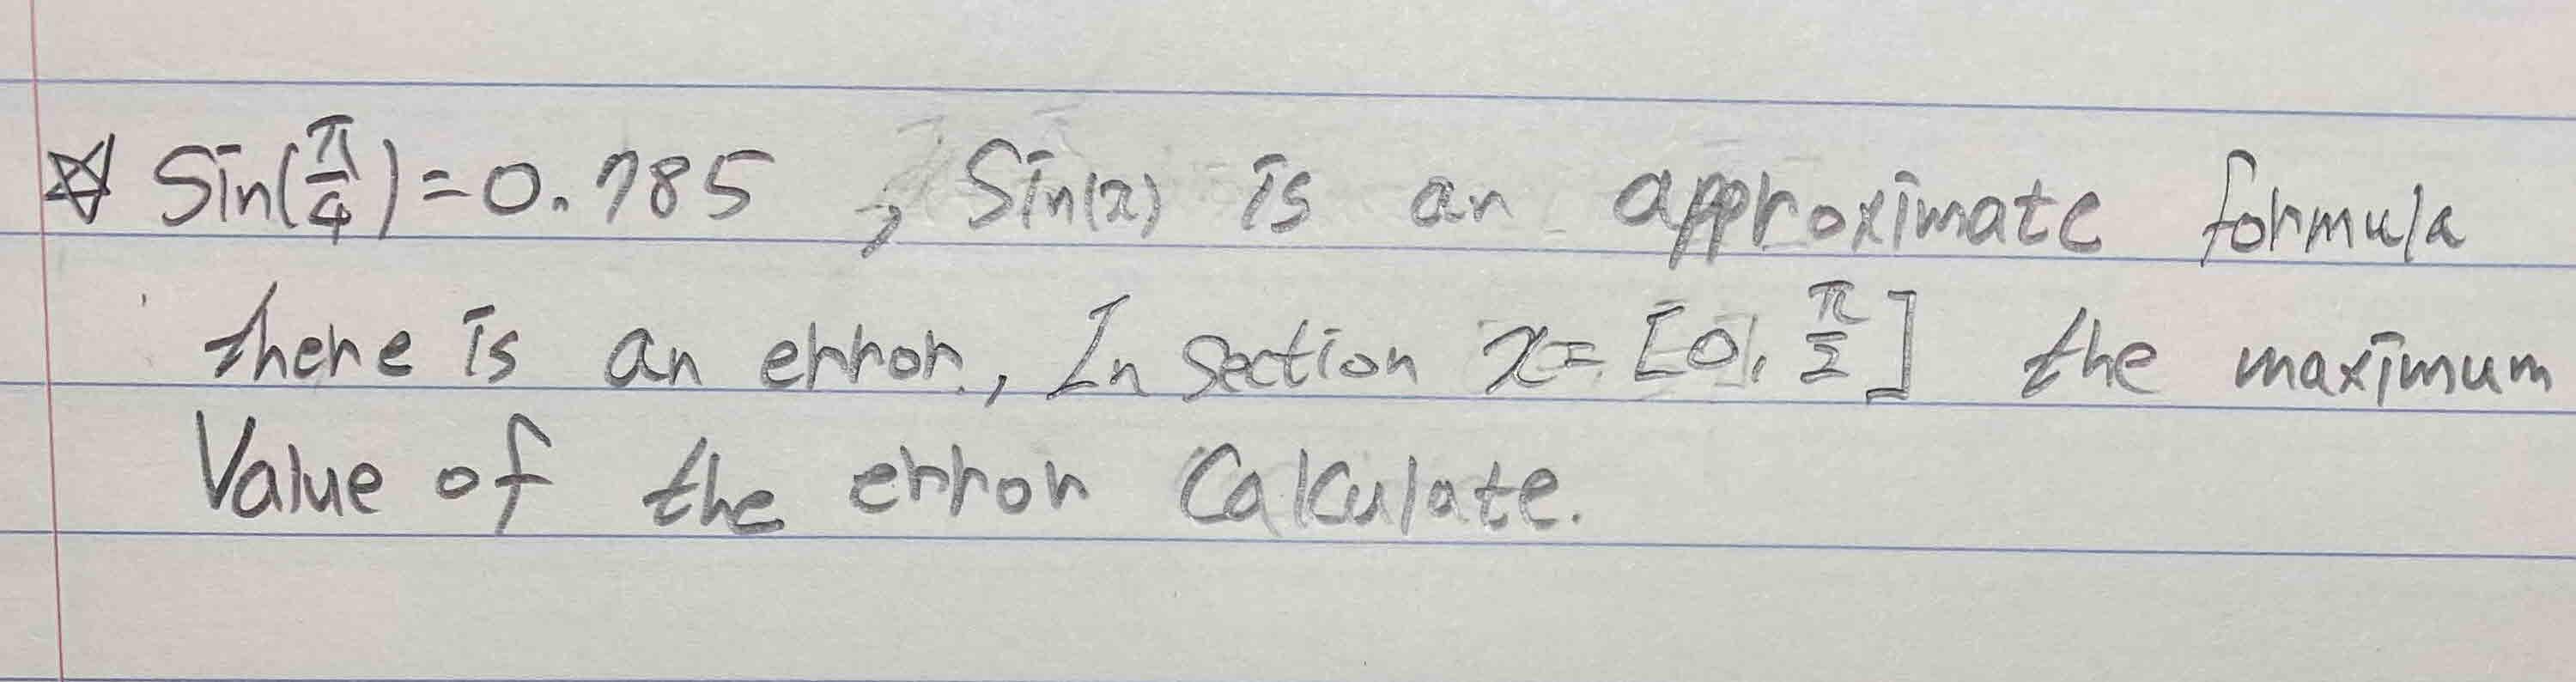 ☆ Sin(π/4)=0.785 , Sin(x) is an approximate formula
there is an error, In section x= [0, π/2] the maximum
Value of the error Calculate.